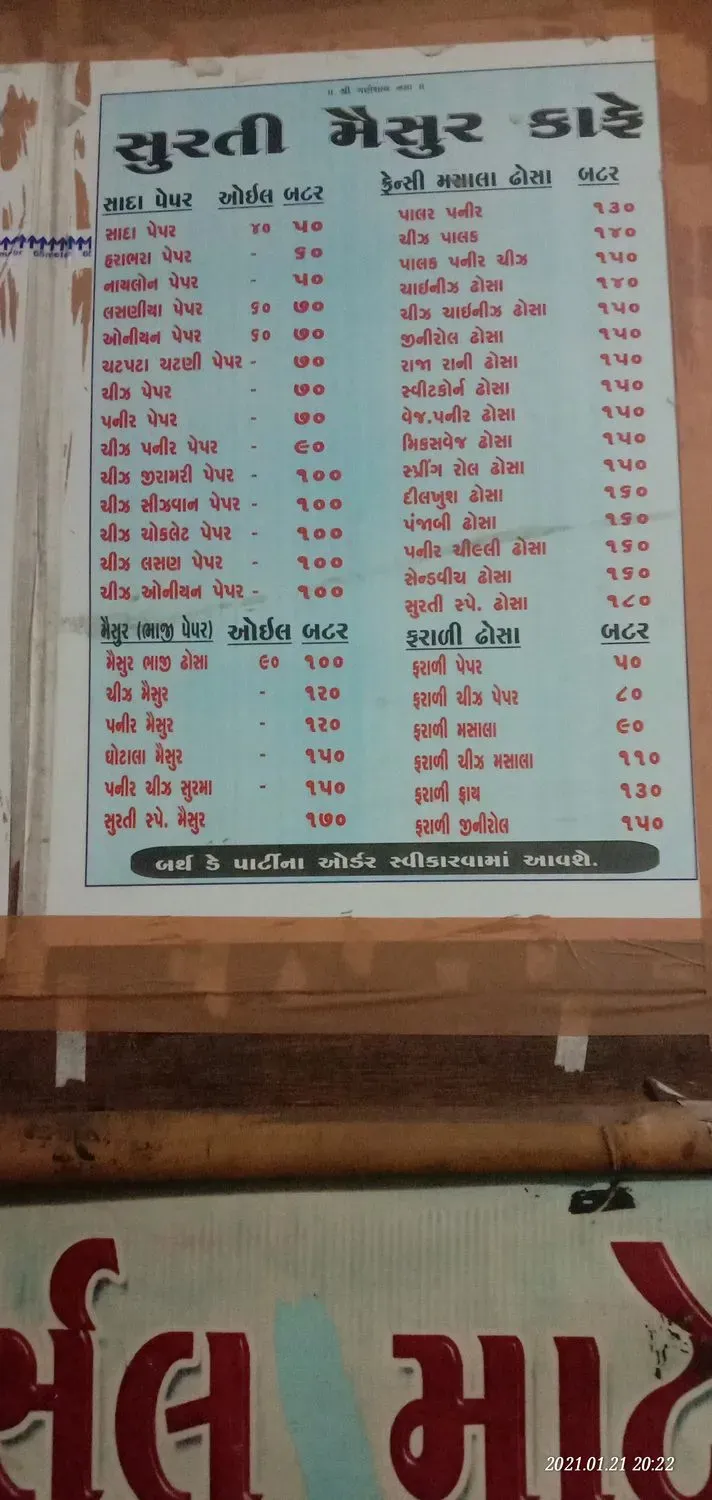 ॥ શ્રી ગણેશાય નમઃ ॥
સુરતી મૈસુર કાફે
સાદા પેપર ઓઈલ બટર
સાદા પેપર ૪૦ ૫૦
હરાભરા પેપર - ૬૦
નાયલોન પેપર - ૫૦
લસણીયા પેપર ૬૦ ૭૦
ઓનીયન પેપર ૬૦ ૭૦
ચટપટા ચટણી પેપર - ૭૦
ચીઝ પેપર - ૭૦
પનીર પેપર - ૭૦
ચીઝ પનીર પેપર - ૯૦
ચીઝ જીરામરી પેપર - ૧૦૦
ચીઝ સીઝવાન પેપર - ૧૦૦
ચીઝ ચોકલેટ પેપર - ૧૦૦
ચીઝ લસણ પેપર - ૧૦૦
ચીઝ ઓનીયન પેપર - ૧૦૦
મૈસુર (ભાજી પેપર) ઓઈલ બટર
મૈસુર ભાજી ઢોસા ૯૦ ૧૦૦
ચીઝ મૈસુર - ૧૨૦
પનીર મૈસુર - ૧૨૦
ઘોટાલા મૈસુર - ૧૫૦
પનીર ચીઝ સુરમા - ૧૫૦
સુરતી સ્પે. મૈસુર ૧૭૦
ફેન્સી મસાલા ઢોસા બટર
પાલર પનીર ૧૩૦
ચીઝ પાલક ૧૪૦
પાલક પનીર ચીઝ ૧૫૦
ચાઈનીઝ ઢોસા ૧૪૦
ચીઝ ચાઈનીઝ ઢોસા ૧૫૦
જીનીરોલ ઢોસા ૧૫૦
રાજા રાની ઢોસા ૧૫૦
સ્વીટકોર્ન ઢોસા ૧૫૦
વેજ.પનીર ઢોસા ૧૫૦
મિકસવેજ ઢોસા ૧૫૦
સ્પ્રીંગ રોલ ઢોસા ૧૫૦
દીલખુશ ઢોસા ૧૬૦
પંજાબી ઢોસા ૧૬૦
પનીર ચીલ્લી ઢોસા ૧૬૦
સેન્ડવીચ ઢોસા ૧૬૦
સુરતી સ્પે. ઢોસા ૧૮૦
ફરાળી ઢોસા બટર
ફરાળી પેપર ૫૦
ફરાળી ચીઝ પેપર ૮૦
ફરાળી મસાલા ૯૦
ફરાળી ચીઝ મસાલા ૧૧૦
ફરાળી ફ્રાય ૧૩૦
ફરાળી જીનીરોલ ૧૫૦
બર્થ ડે પાર્ટીના ઓર્ડર સ્વીકારવામાં આવશે.
ર્સલ માટે
2021.01.21 20:22